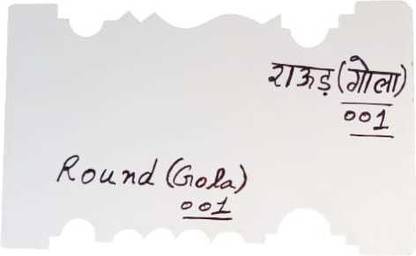 राऊड़ (गोला)
001
Round (Gola)
001